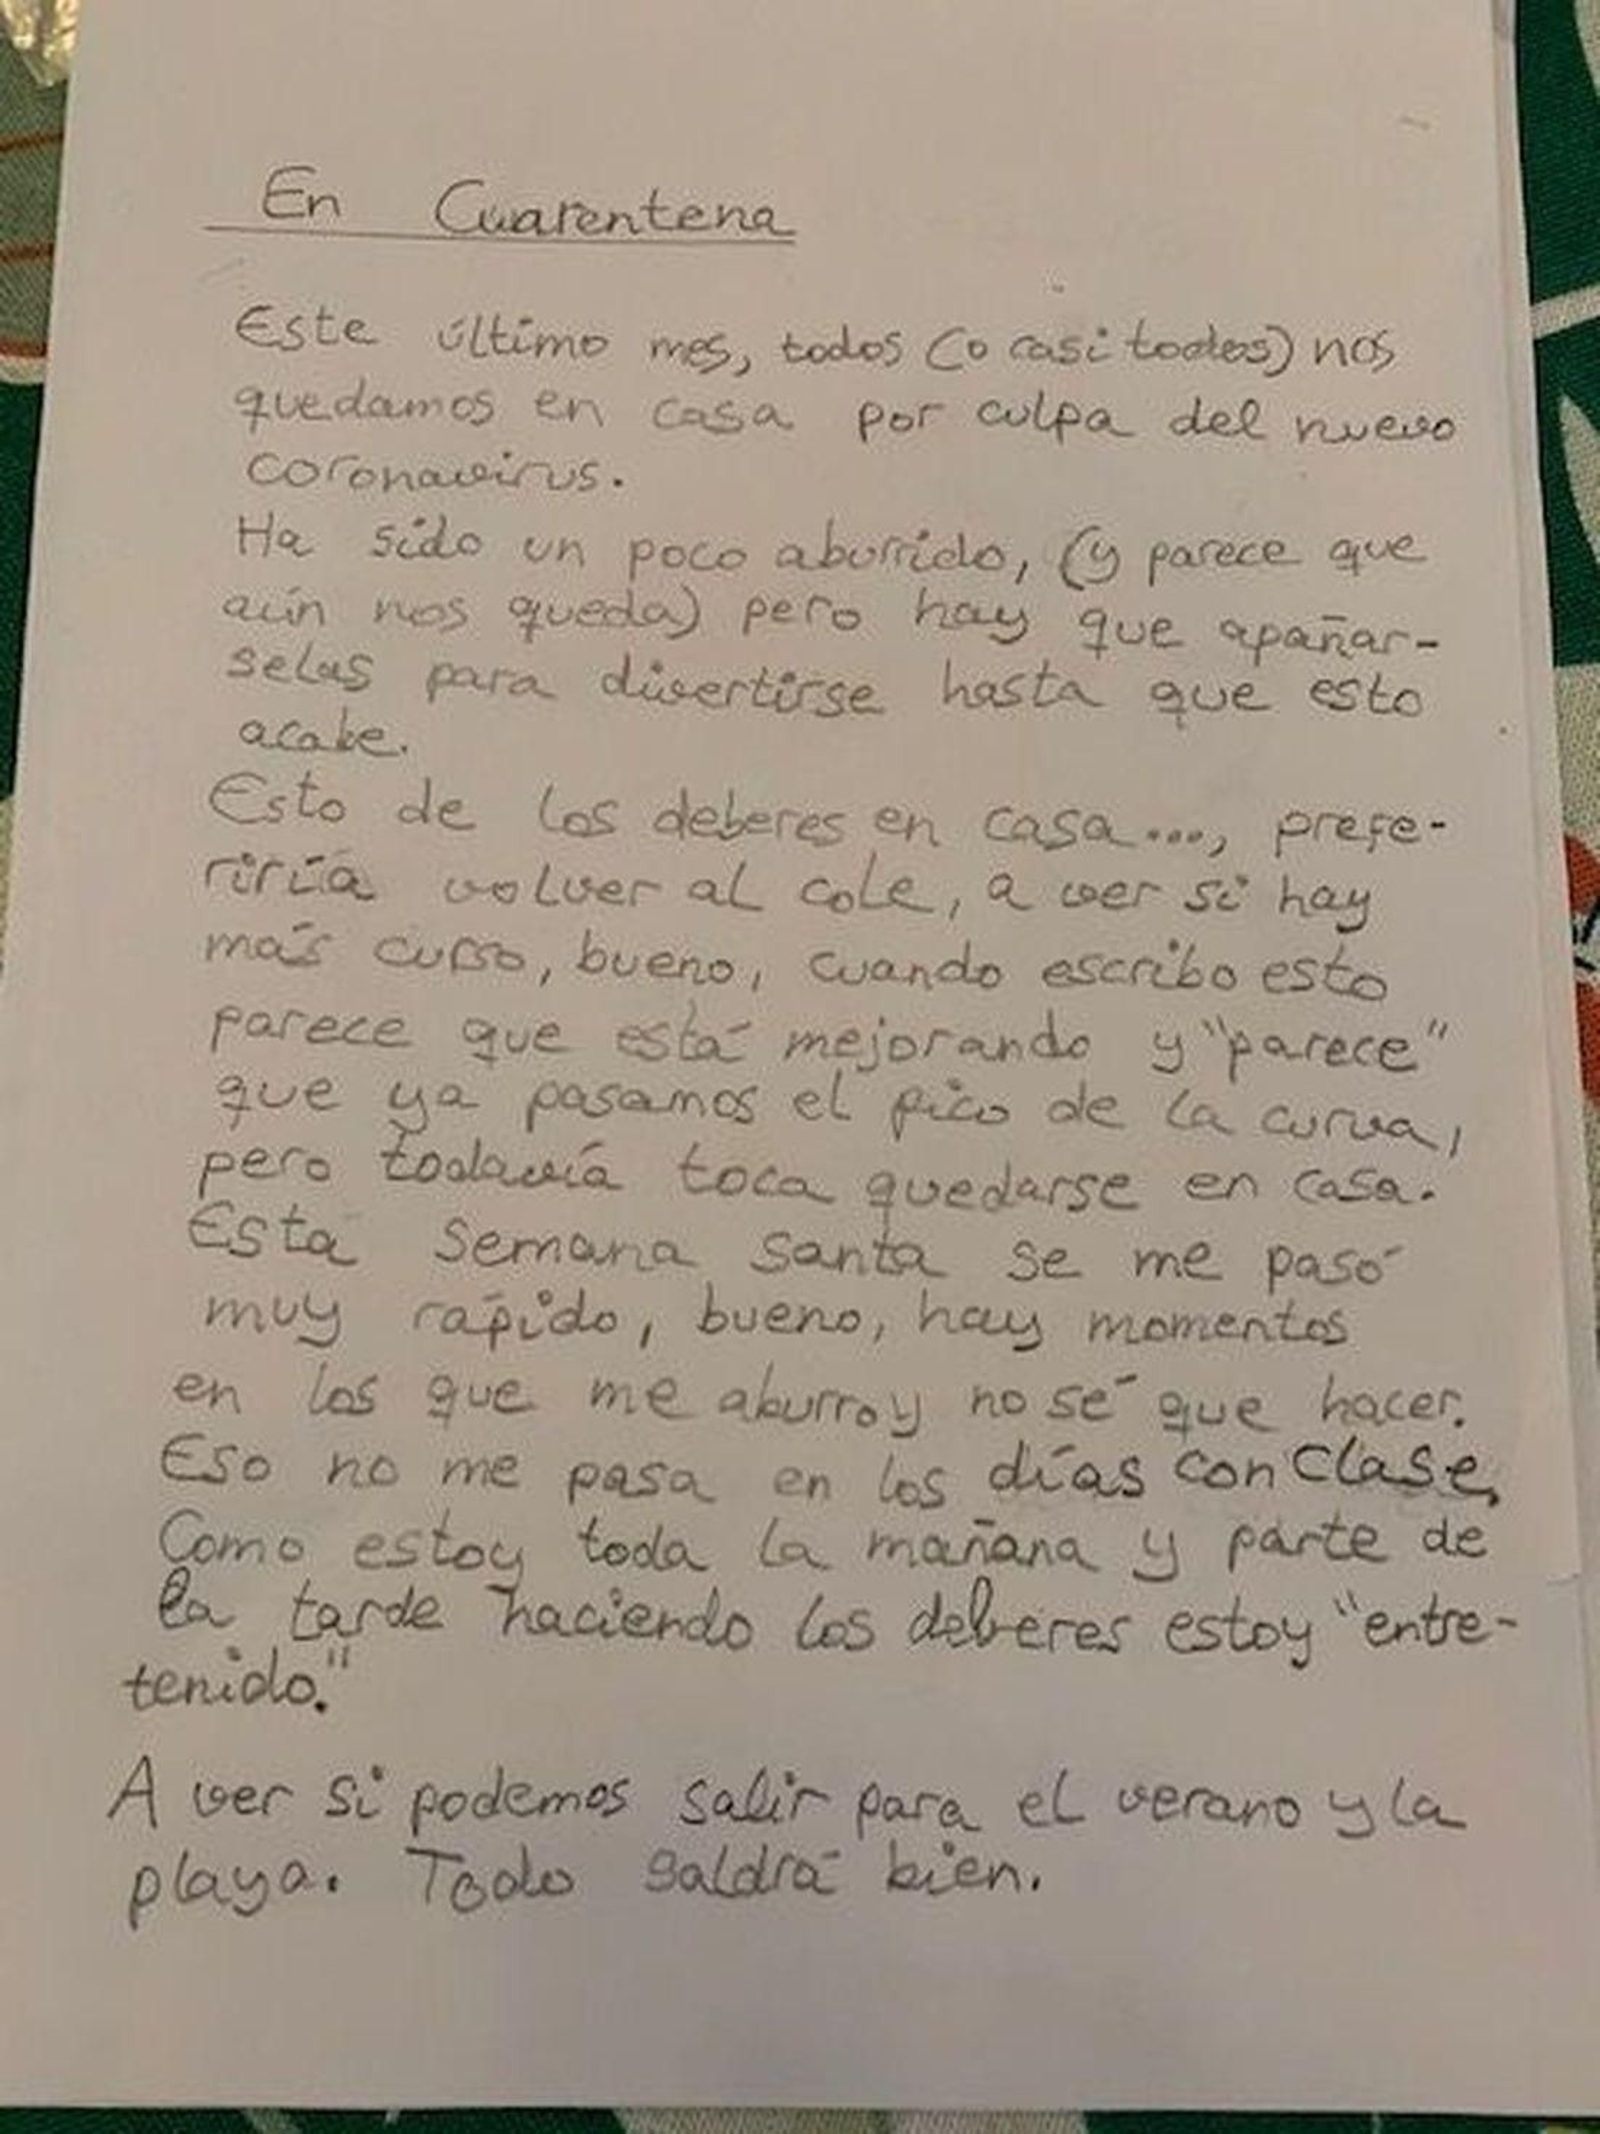 En Cuarentena
Este último mes, todos (o casi todos) nos
quedamos en casa por culpa del nuevo
coronavirus.
Ha sido un poco aburrido, (y parece que
aún nos queda) pero hay que apañar-
selas para divertirse hasta que esto
acabe.
Esto de los deberes en casa..., prefe-
riría volver al cole, a ver si hay
más curso, bueno, cuando escribo esto
parece que está mejorando y "parece"
que ya pasamos el pico de la curva,
pero todavía toca quedarse en casa.
Esta Semana Santa se me pasó
muy rápido, bueno, hay momentos
en los que me aburro y no sé que hacer.
Eso no me pasa en los días con clase,
Como estoy toda la mañana y parte de
la tarde haciendo los deberes estoy "entre-
tenido."
A ver si podemos salir para el verano y la
playa. Todo saldrá bien.